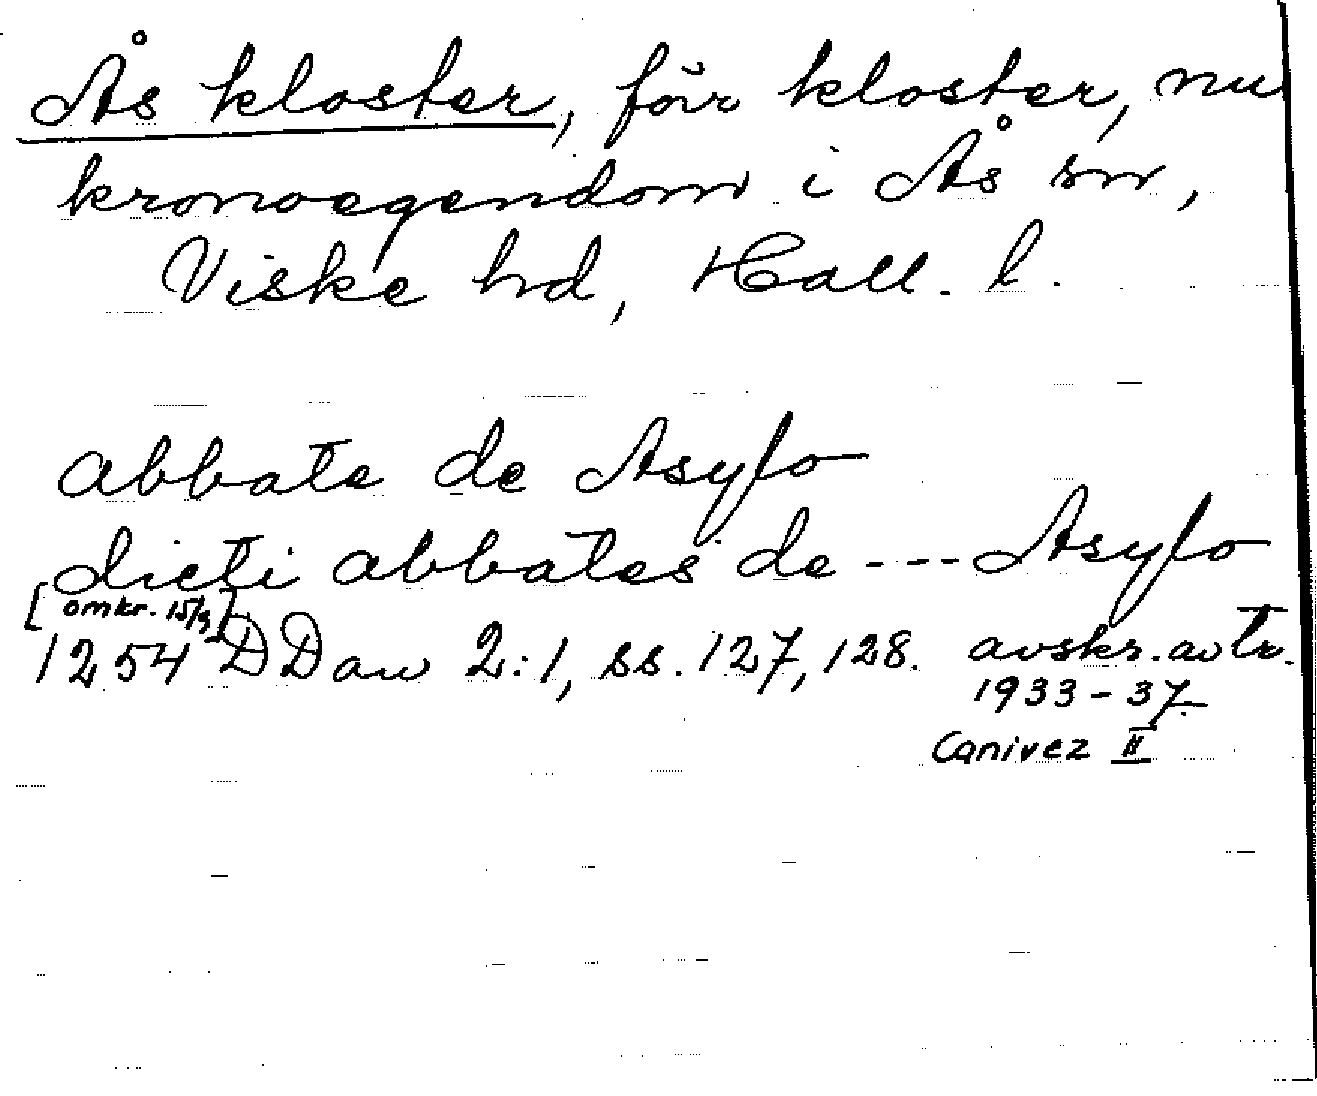 Ås kloster, förr kloster, nu
kronoegendom i Ås sn,
Viske hd, Hall. l.
abbate de Asylo
dicti abbates de --- Asylo
[omkr. 15/9]
1254 DDan 2:1, ss. 127, 128. avskr. av tr.
1933-37.
Canivez II